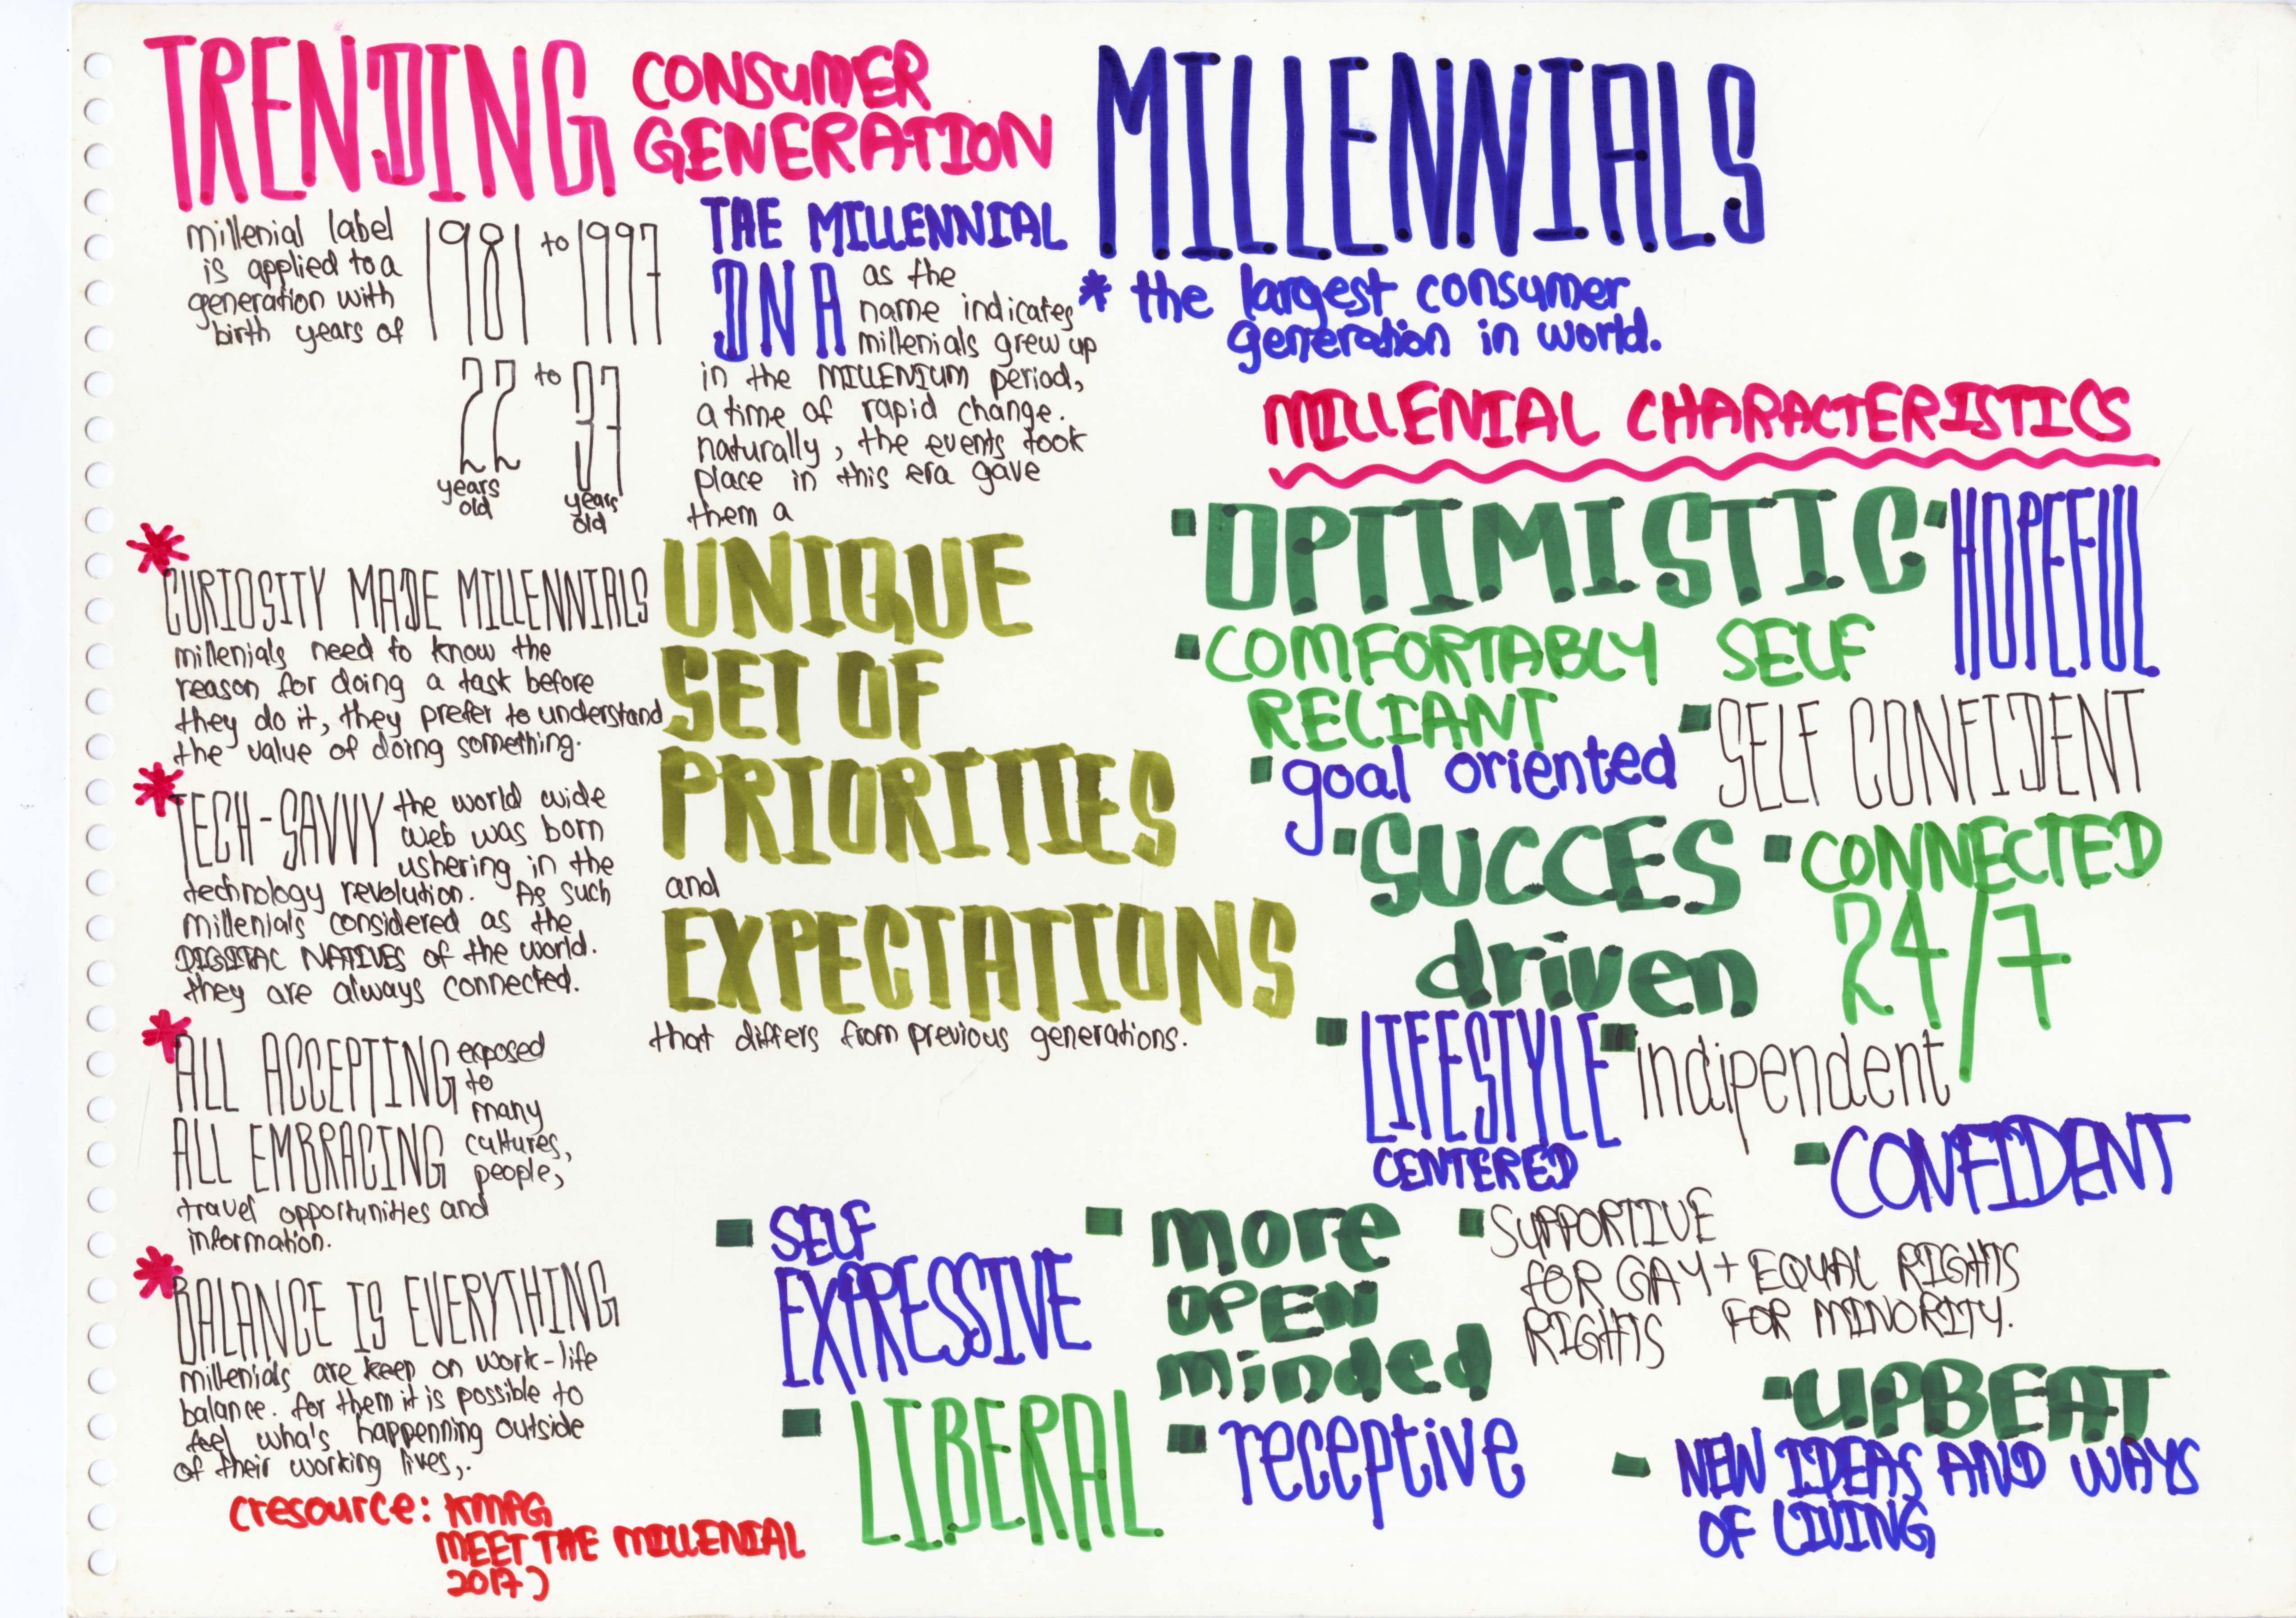 TRENDING CONSUMER
GENERATION
millenial label
is applied to a
generation with
birth years of
1981 to 1997
22 to 37
years
old
years
old
*
CURIOSITY MADE MILLENNIALS
millenials need to know the
reason for doing a task before
they do it, they prefer to understand
the value of doing something.
*
TECH-SAVVY the world wide
web was born
ushering in the
technology revolution. As such
millenials considered as the
DIGITAL NATIVES of the world.
they are always connected.
*
ALL ACCEPTING exposed
to
many
ALL EMBRACING cultures,
people,
travel opportunities and
information.
*
BALANCE IS EVERYTHING
millenials are keep on work-life
balance. for them it is possible to
feel wha's happenning outside
of their working lives,.
(resource: KMPG
MEET THE MILLENIAL
2017)
THE MILLENNIAL
DNA as the
name indicates
millenials grew up
in the MILLENIUM period,
a time of rapid change.
naturally, the events took
place in this era gave
them a
UNIQUE
SET OF
PRIORITIES
and
EXPECTATIONS
that differs from previous generations.
MILLENNIALS
* the largest consumer
generation in world.
MILLENIAL CHARACTERISTICS
OPTIMISTIC
HOPEFUL
COMFORTABLY SELF
RELIANT
SELF CONFIDENT
goal oriented
SUCCES
driven
CONNECTED
24/7
LIFESTYLE
CENTERED
indipendent
CONFIDENT
SELF
EXPRESSIVE
more
OPEN
minded
SUPPORTIVE
FOR GAY + EQUAL RIGHTS
RIGHTS FOR MINORITY.
LIBERAL
receptive
UPBEAT
NEW IDEAS AND WAYS
OF LIVING